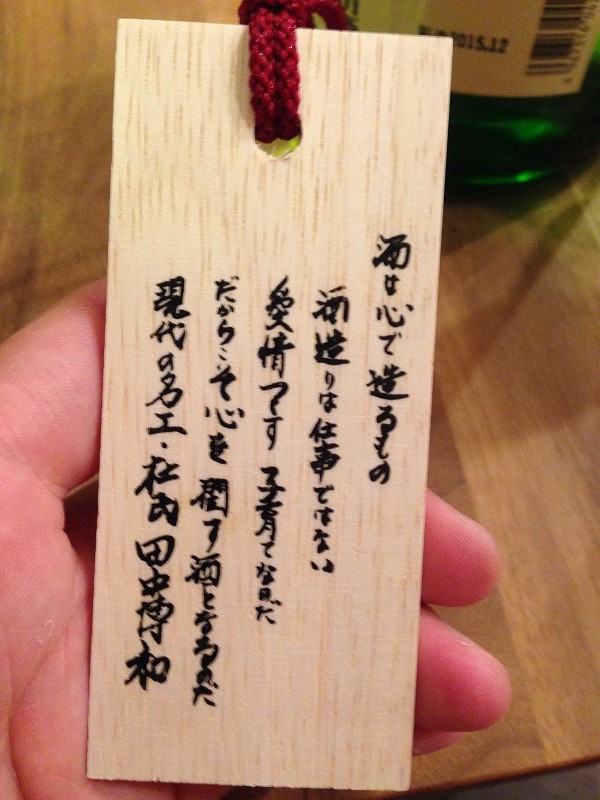 酒は心で造るもの
酒造りは仕事ではない
愛情つくす 子育てなのだ
だからこそ心を 潤す酒となるのだ
現代の名工・杜氏 田中博和
2015.12